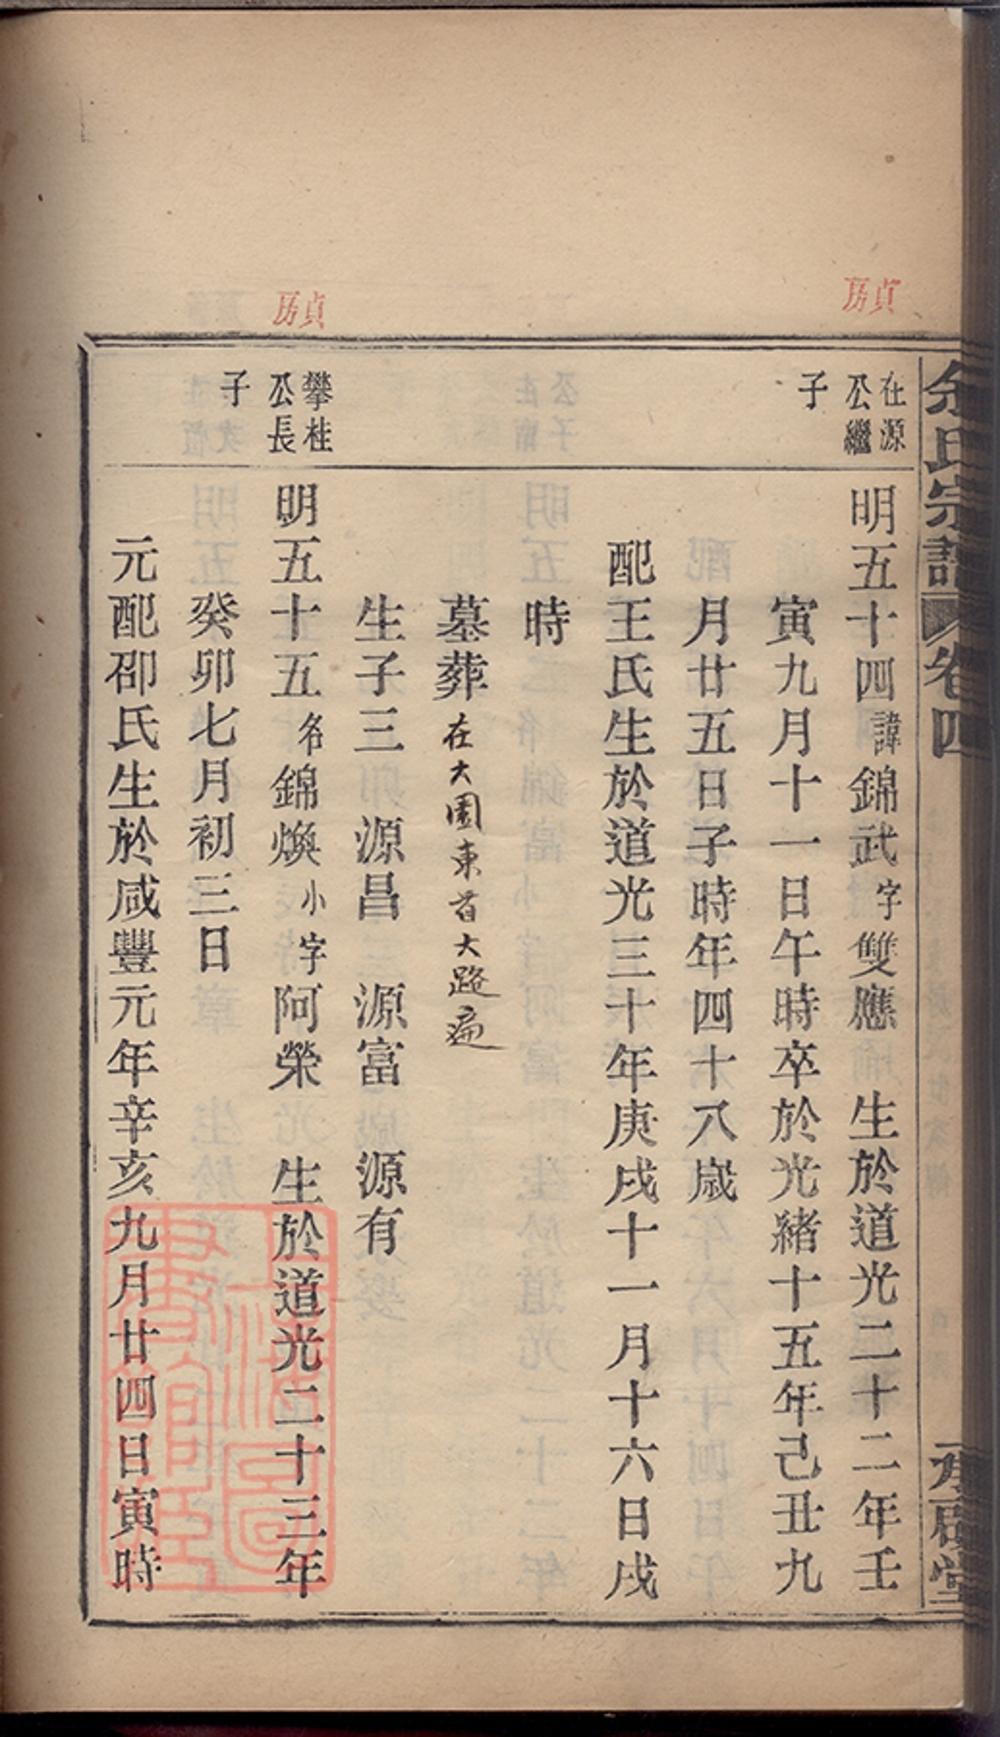 余氏宗譜
卷四
承啟堂
貞
房
在源
公繼
子
明五十四諱錦武字雙應 生於道光二十二年壬
寅九月十一日午時卒於光緒十五年己丑九
月廿五日子時年四十八歲
配王氏生於道光三十年庚戌十一月十六日戌
時
墓葬在大園東首大路邊
生子三 源昌 源富 源有
貞
房
攀桂
公長
子
明五十五名錦煥小字阿榮 生於道光二十三年
癸卯七月初三日
元配邵氏生於咸豐元年辛亥九月廿四日寅時
上海圖
書館藏